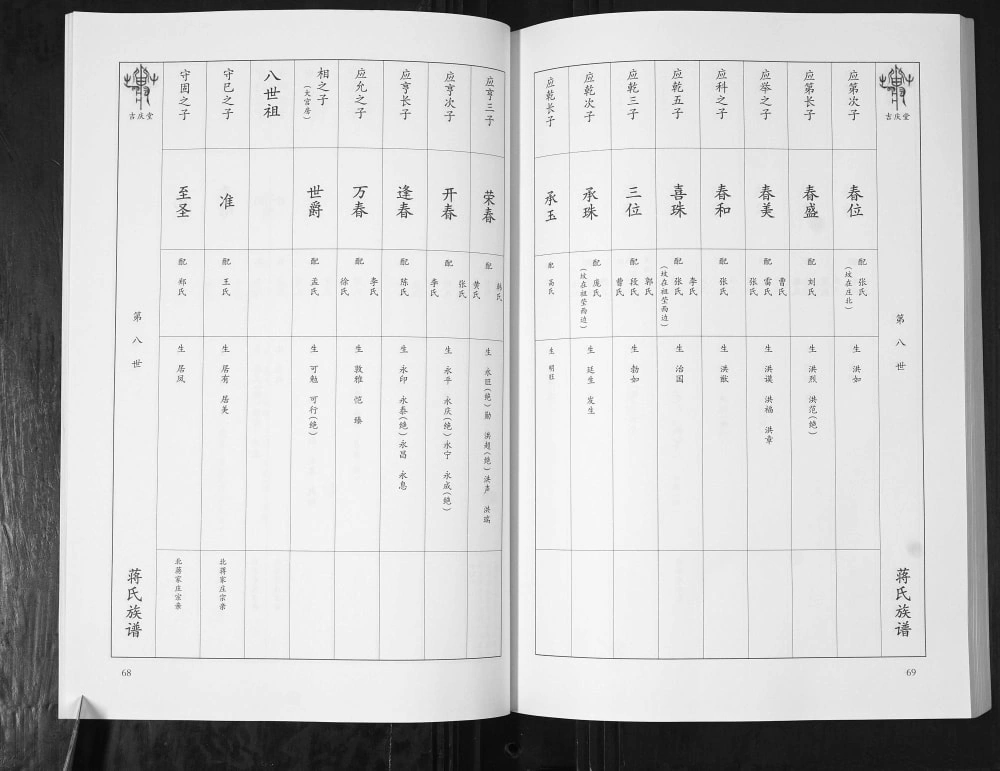 吉庆堂
第八世
蒋氏族谱
68
守因之子
至圣
配 郑氏
生 居凤
北蒋家庄宗亲
守已之子
准
配 王氏
生 居有 居美
北蒋家庄宗亲
八世祖
相之子
(大官房)
世爵
配 孟氏
生 可勉 可行(绝)
应允之子
万春
配 徐氏 李氏
生 敦雅 恺 臻
应亨长子
逢春
配 陈氏
生 永印 永泰(绝) 永昌 永息
应亨次子
开春
配 李氏 张氏
生 永平 永庆(绝) 永宁 永成(绝)
应亨三子
荣春
配 黄氏 韩氏
生 永旺(绝) 勋 洪超(绝) 洪声 洪瑞
应乾长子
承玉
配 高氏
生 明旺
应乾次子
承珠
配 庞氏
(坟在祖茔西边)
生 延生 发生
应乾三子
三位
配 曹氏 段氏 郭氏
生 勃如
应乾五子
喜珠
配 张氏 李氏
(坟在祖茔西边)
生 治国
应科之子
春和
配 张氏
生 洪猷
应举之子
春美
配 张氏 雷氏 曹氏
生 洪谟 洪福 洪章
应第长子
春盛
配 刘氏
生 洪烈 洪范(绝)
应第次子
春位
配 张氏
(坟在庄北)
生 洪如
吉庆堂
第八世
蒋氏族谱
69